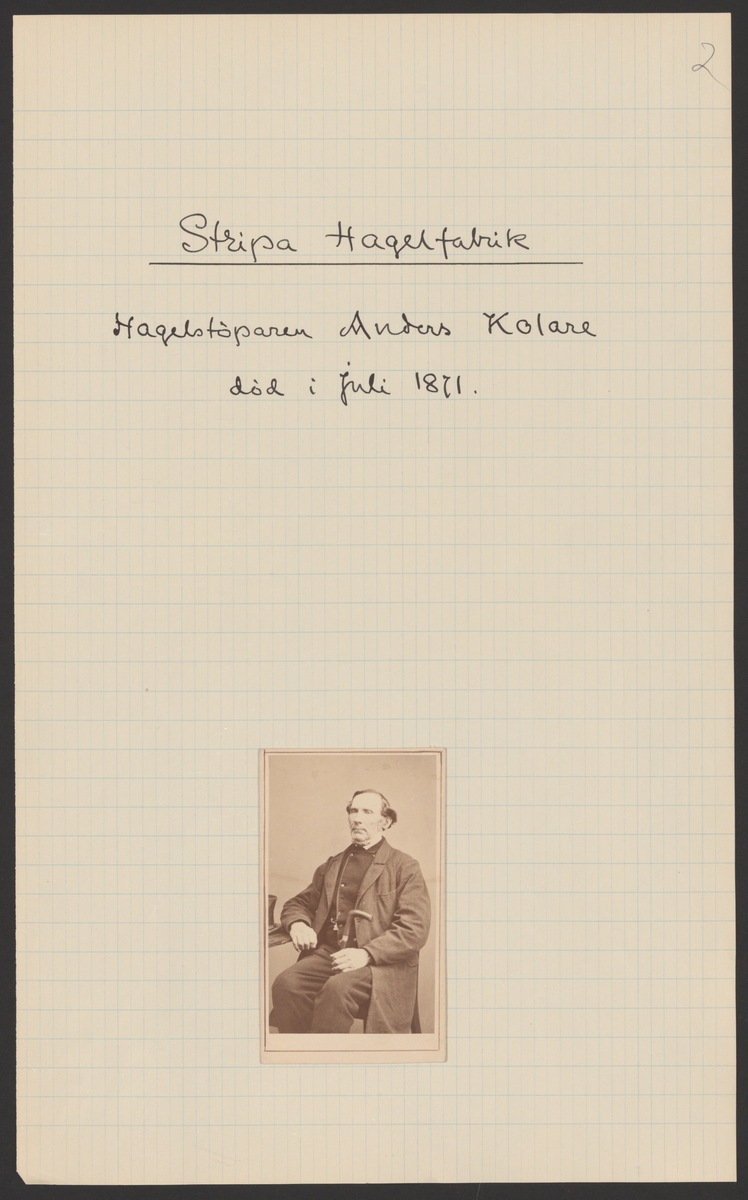 2
Stripa Hagelfabrik
Hagelstöparen Anders Kolare
död i Juli 1871.